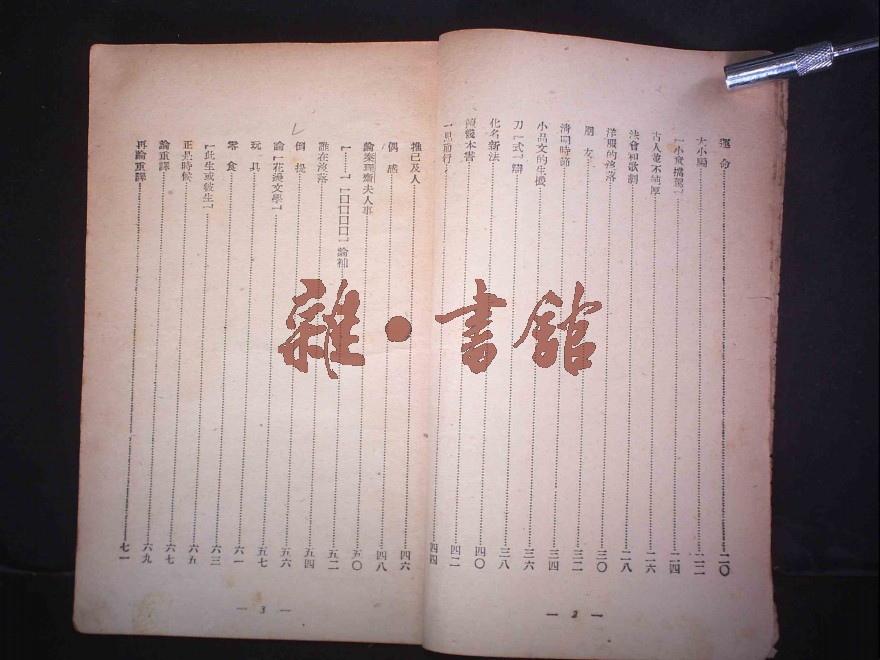 運命 二〇
大小騙 二二
「小童擋駕」 二四
古人並不純厚 二六
法會和歌劇 二八
洋服的沒落 三〇
朋友 三二
清明時節 三四
小品文的生機 三六
刀「式」辯 三八
化名新法 四〇
讀幾本書 四二
一思而行 四四
— 2 —
推己及人 四六
偶感 四八
論秦理齋夫人事 五〇
「……」「□□□□」論補 五二
誰在沒落 五四
倒提 五六
論「花邊文學」 五七
玩具 六一
零食 六三
「此生或彼生」 六五
正是時候 六七
論重譯 六九
再論重譯 七一
— 3 —
雜•書館